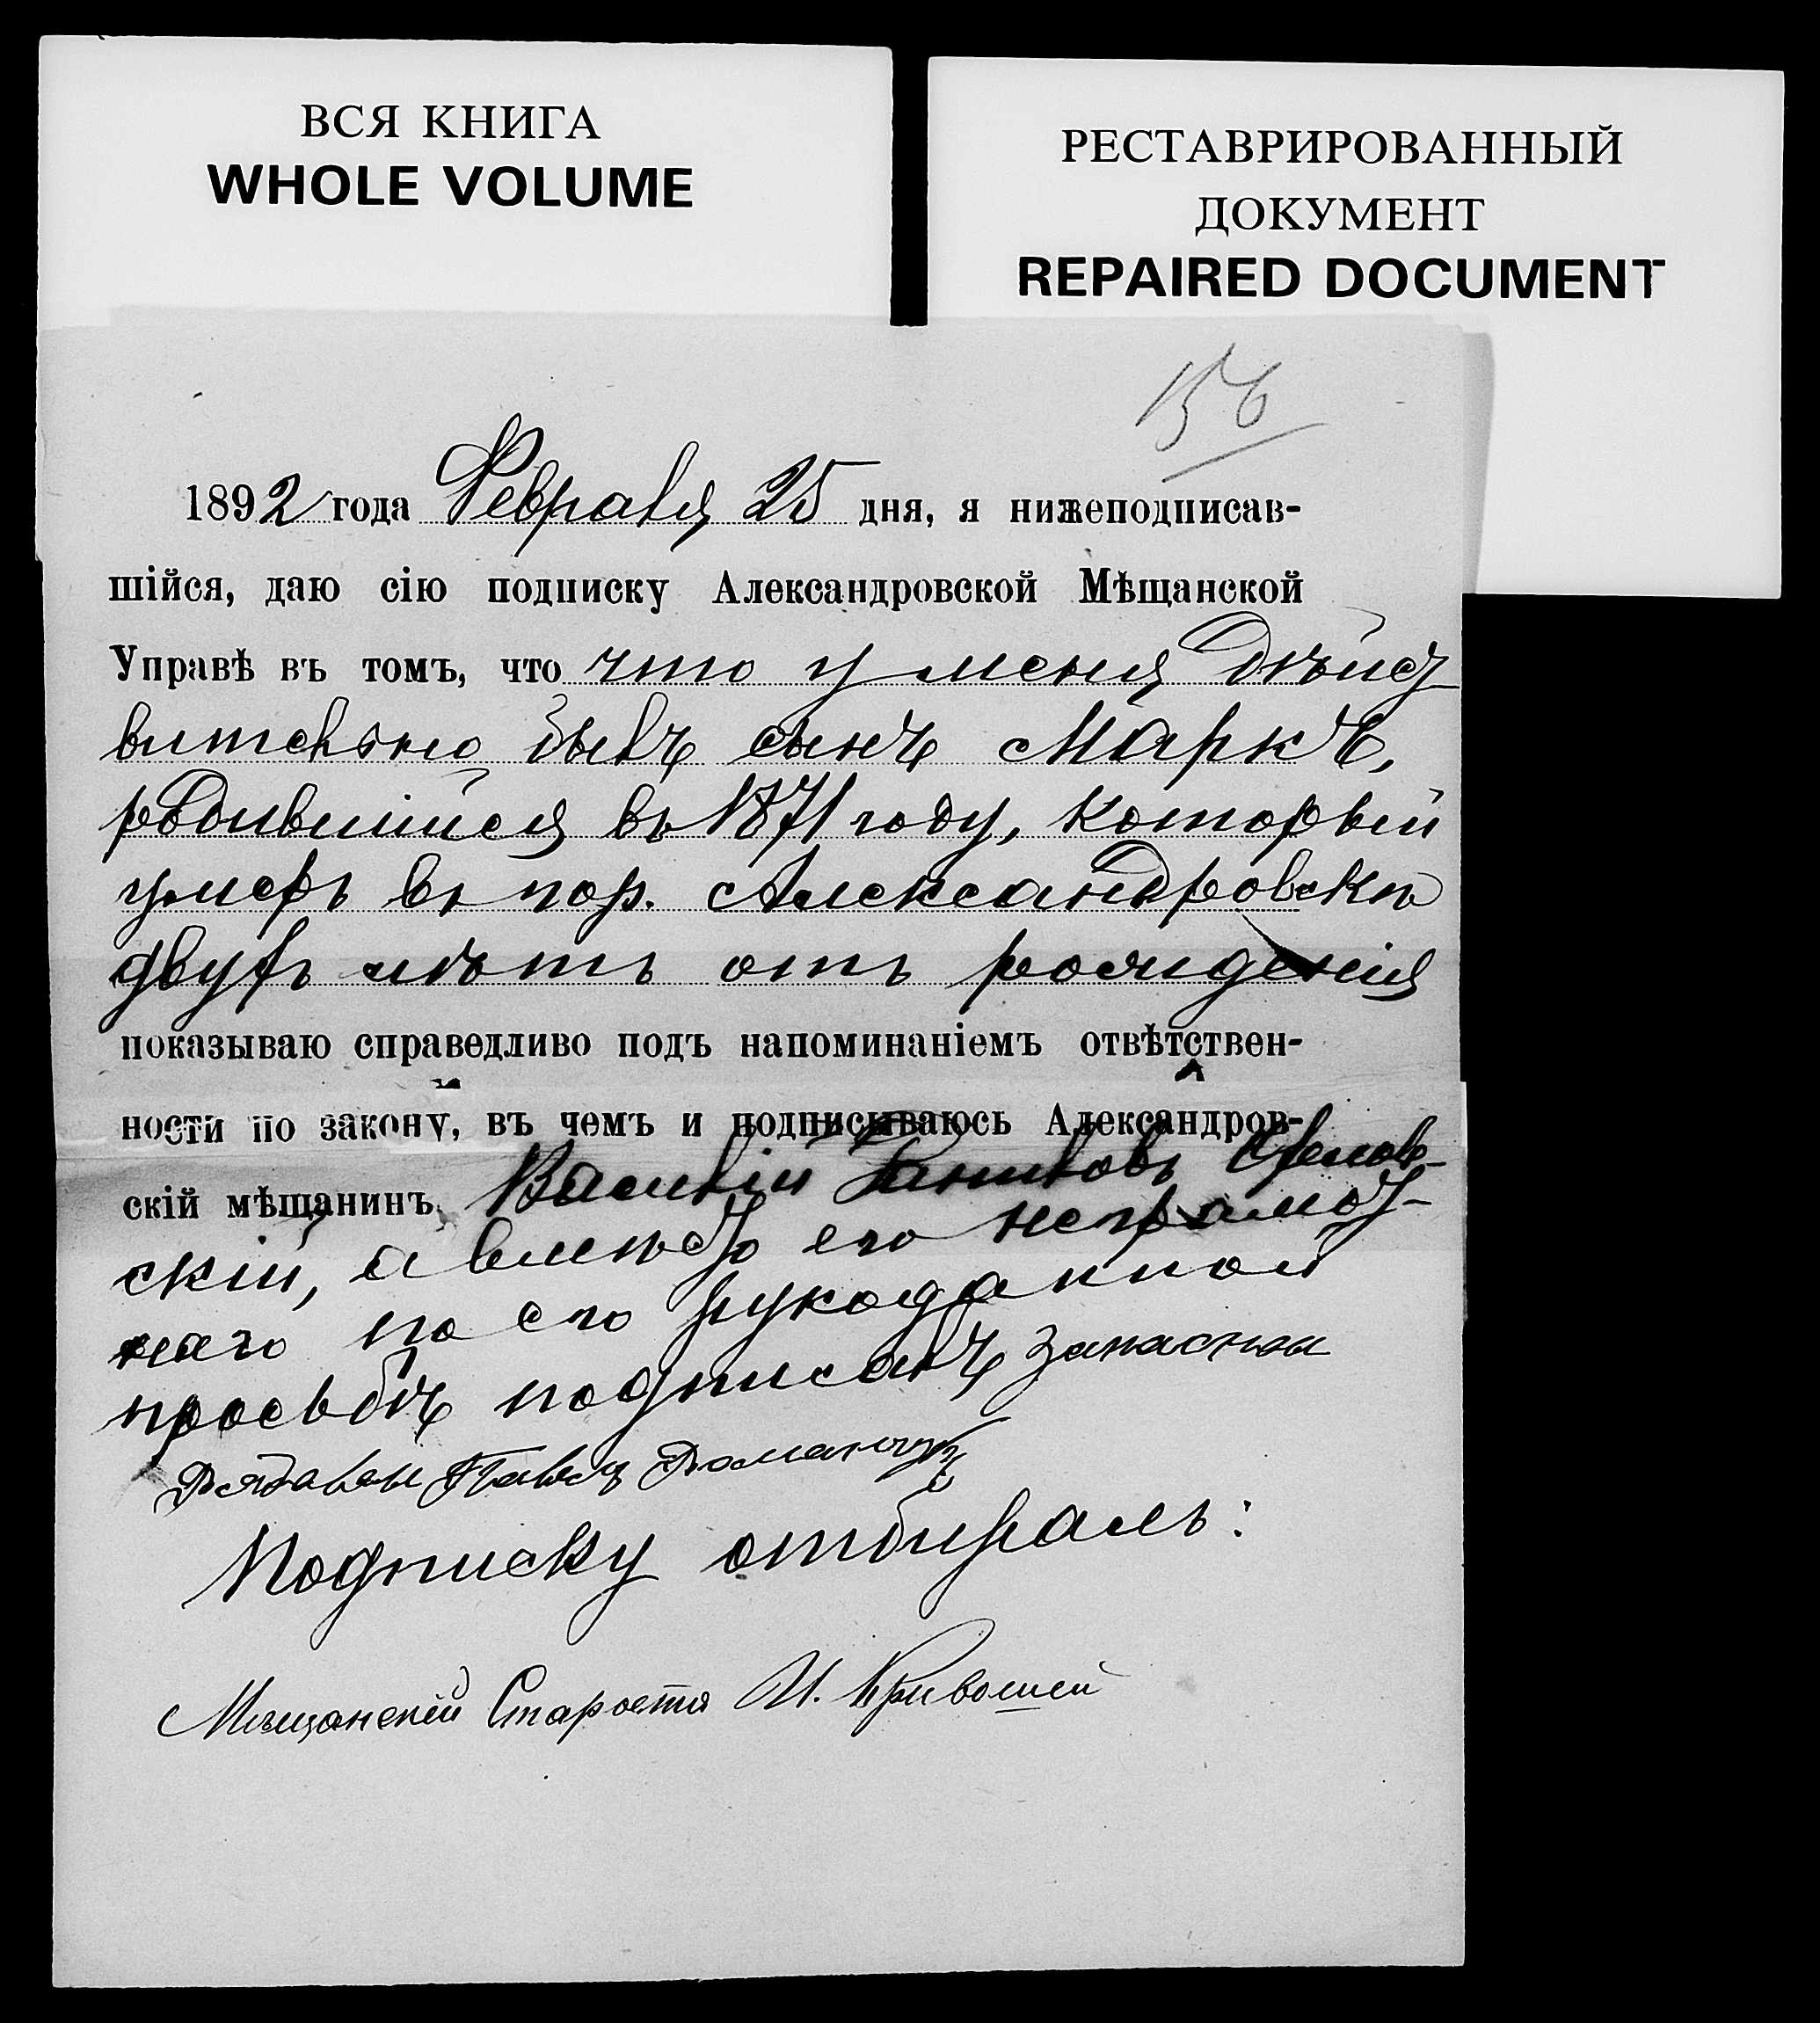 ВСЯ КНИГА
WHOLE VOLUME
РЕСТАВРИРОВАННЫЙ
ДОКУМЕНТ
REPAIRED DOCUMENT
156
1892 года Февраля 25 дня, я нижеподписав-
шійся, даю сію подписку Александровской Мѣщанской
Управѣ въ томъ, что что у меня дѣйст
вительно былъ сынъ Маркъ,
родившийся въ 1871 году, который
умеръ въ гор. Александровскѣ
двухъ лѣтъ отъ рожденія
показываю справедливо подъ напоминаніемъ отвѣтствен-
ности по закону, въ чемъ и подписываюсь Александров-
скій мѣщанинъ Василій
скій, а вместо его неграмот-
наго по его рукоданной
просьбѣ подписалъ Запасный
Рядовой Павелъ Романчук
Подписку отбиралъ:
Мѣщанскій Староста И. Кривошей